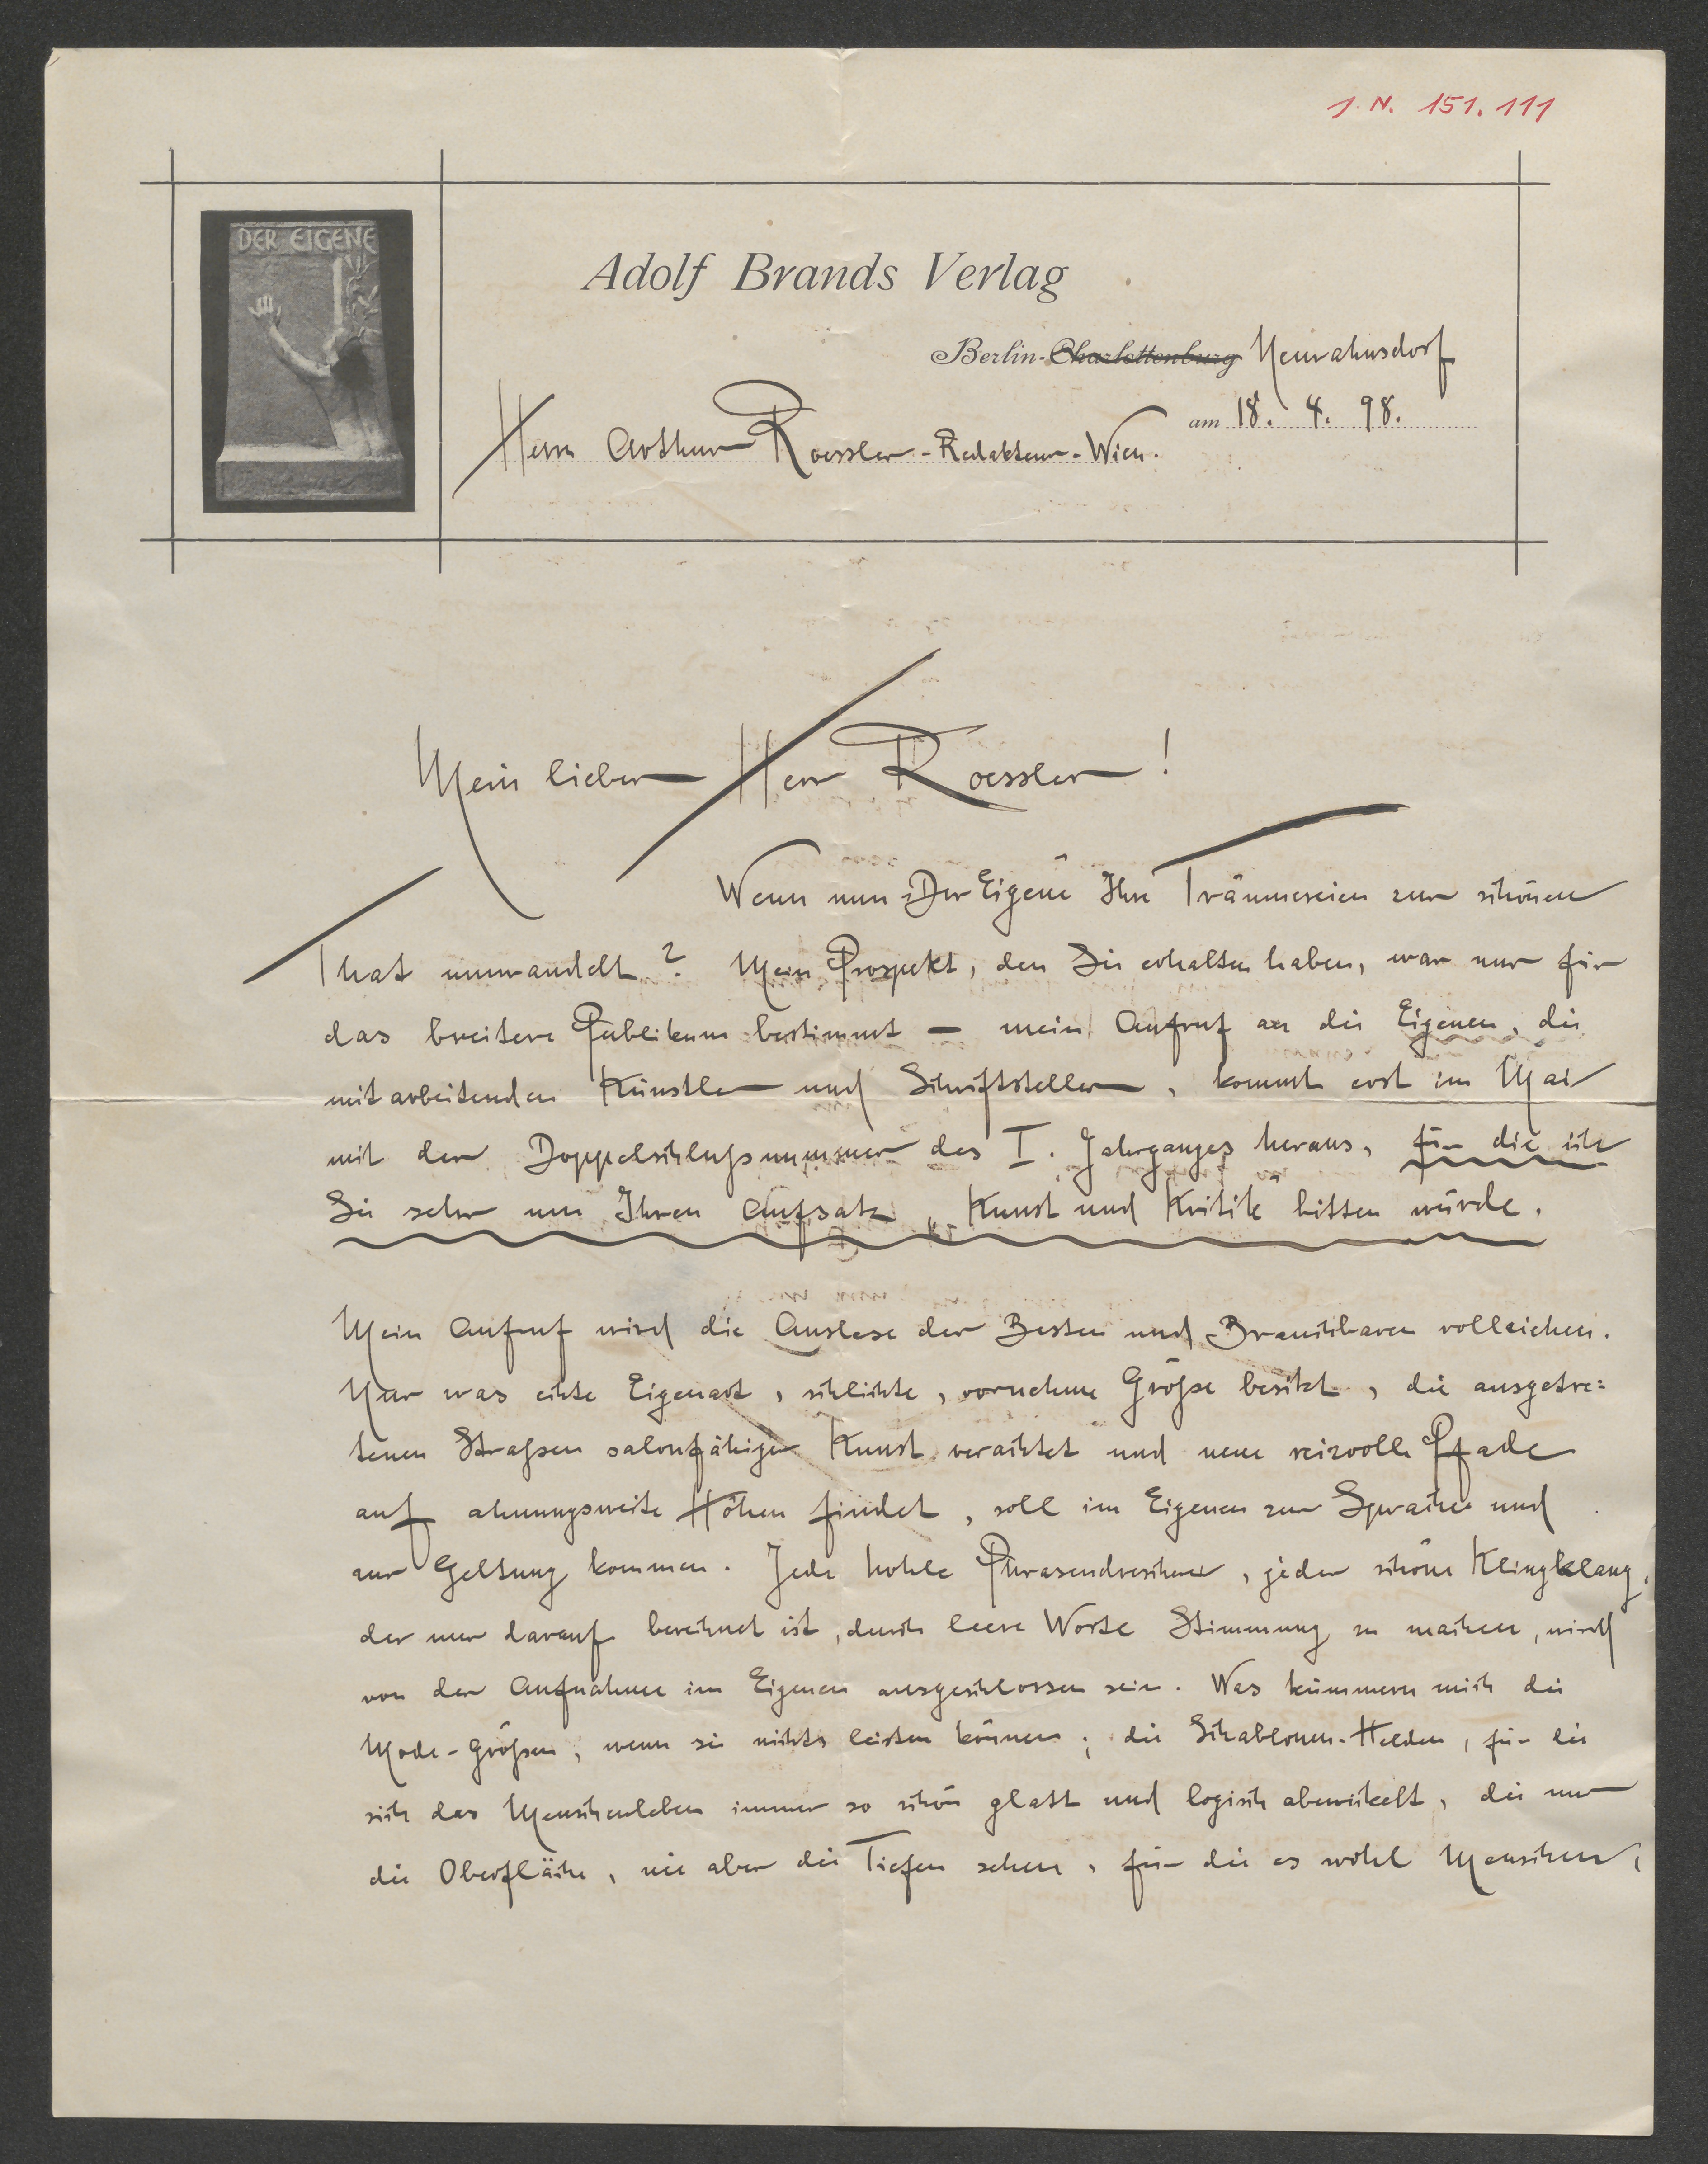 J. N. 151.111
DER EIGENE
Adolf Brands Verlag
Berlin-Charlottenburg Neurahnsdorf
am 18. 4. 98.
Herrn Arthur Roessler - Redakteur - Wien.
Mein lieber Herr Roessler!
Wenn nun „Der Eigene" Ihre Träumereien zur schönen
That umwandelt? Mein Prospekt, den Sie erhalten haben, war nur für
das breitere Publikum bestimmt – mein Aufruf an die Eigenen, die
mitarbeitenden Künstler und Schriftsteller, kommt erst im Mai
mit der Doppelschlußnummer des I. Jahrganges heraus, für die ich
Sie sehr um Ihren Aufsatz „Kunst und Kritik" bitten würde.
Mein Aufruf wird die Auslese der Besten und Brauchbaren vollziehen.
Nur was echte Eigenart, schlichte, vornehme Größe besitzt, die ausgetre=
tenen Straßen salonfähiger Kunst verachtet und neue reizvolle Pfade
auf ahnungsweite Höhen findet, soll im Eigenen zur Sprache und
zur Geltung kommen. Jede hohle Phrasendrescherei, jeder schöne Klingklang,
der nur darauf berechnet ist, durch leere Worte Stimmung zu machen, wird
von der Aufnahme im Eigenen ausgeschlossen sein. Was kümmern mich die
Mode-Größen, wenn sie nichts leisten können; die Schablonen-Helden, für die
sich das Menschenleben immer so schön glatt und logisch abwickelt, die nur
die Oberfläche, nie aber die Tiefen sehen, für die es wohl Menschen,